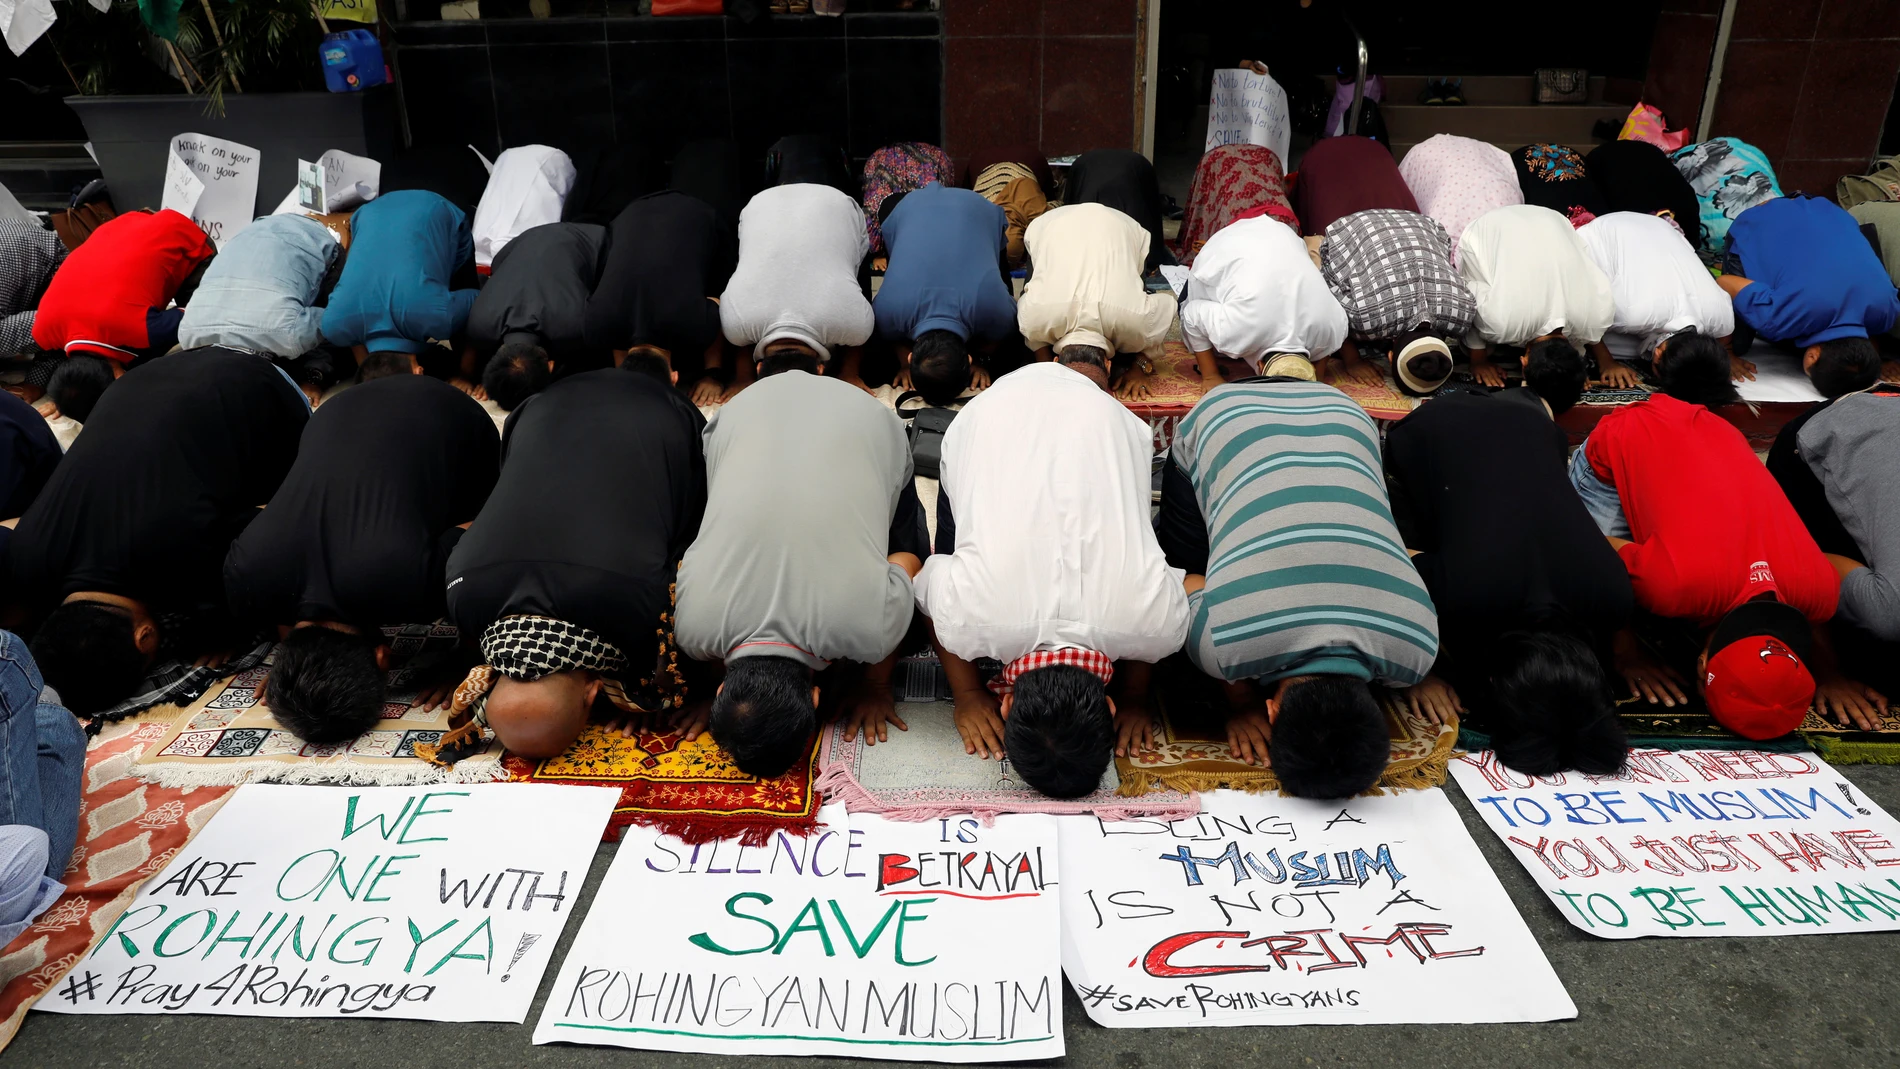 PAST
Knock on your
on your
ANS
AN
LY
* No to torture!
* No to brutality!
* No to violence!
SAVE
WE
ARE ONE WITH
ROHINGYA!
# Pray4Rohingya
SILENCE IS BETRAYAL
SAVE
ROHINGYAN MUSLIM
BEING A
MUSLIM
IS NOT A
CRIME
#SAVEROHINGYANS
YOU DON'T NEED
TO BE MUSLIM!
YOU JUST HAVE
TO BE HUMAN